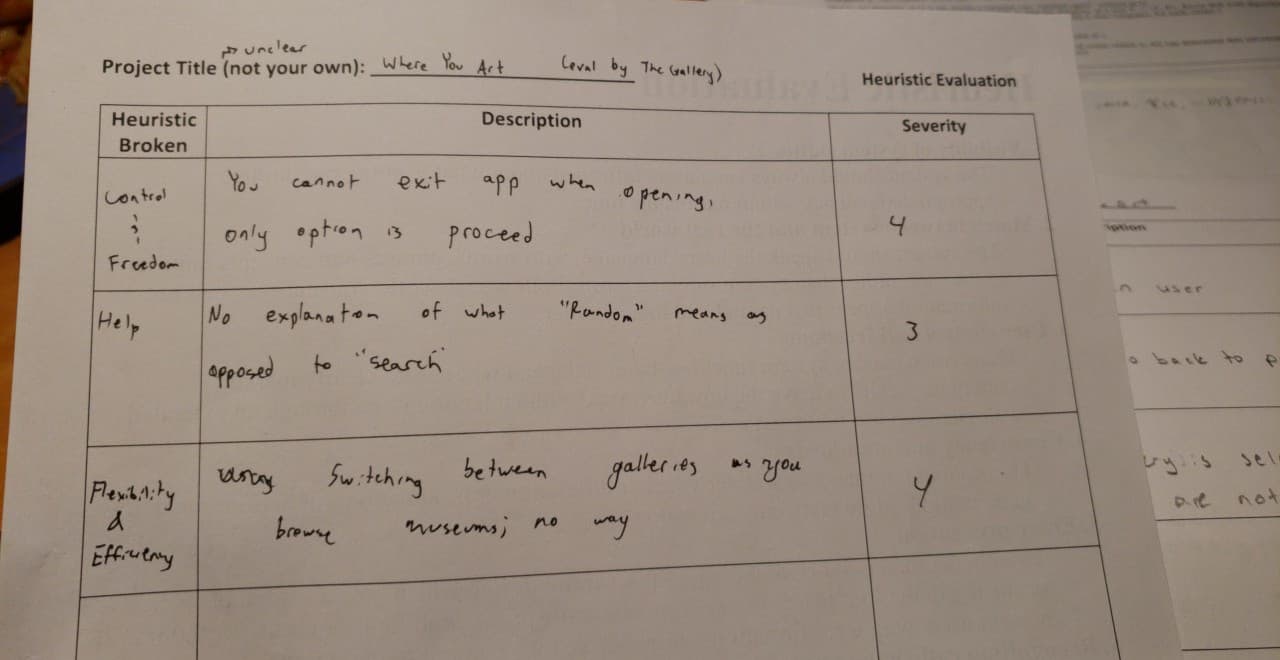 → unclear
Project Title (not your own): Where You Art (eval by The Gallery)
Heuristic Evaluation
Heuristic Broken
Description
Severity
Control
&
Freedom
You cannot exit app when opening,
only option is proceed
4
Help
No explanation of what "Random" means as
opposed to "search"
3
Flexibility
&
Efficiency
Switching between galleries as you
browse museums; no way
4
ption
user
back to
is sel
are not